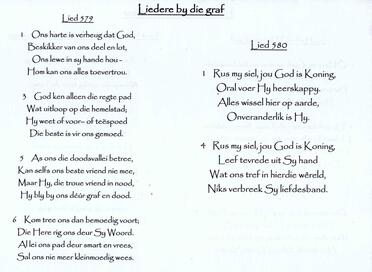 Liedere by die graf
Lied 579
1 Ons harte is verheug dat God,
Beskikker van ons deel en lot,
Ons lewe in sy hande hou -
Hom kan ons alles toevertrou.
3 God ken alleen die regte pad
Wat uitloop op die hemelstad;
Hy weet of voor- of teëspoed
Die beste is vir ons gemoed.
5 As ons die doodsvallei betree,
Kan selfs ons beste vriend nie mee,
Maar Hy, die troue vriend in nood,
Hy bly by ons déúr graf en dood.
6 Kom tree ons dan bemoedig voort;
Die Here rig ons deur Sy Woord.
Al lei ons pad deur smart en vrees,
Sal ons nie meer kleinmoedig wees.
Lied 580
1 Rus my siel, jou God is Koning,
Oral voer Hy heerskappy.
Alles wissel hier op aarde,
Onveranderlik is Hy.
4 Rus my siel, jou God is Koning,
Leef tevrede uit Sy hand
Wat ons tref in hierdie wêreld,
Niks verbreek Sy liefdesband.